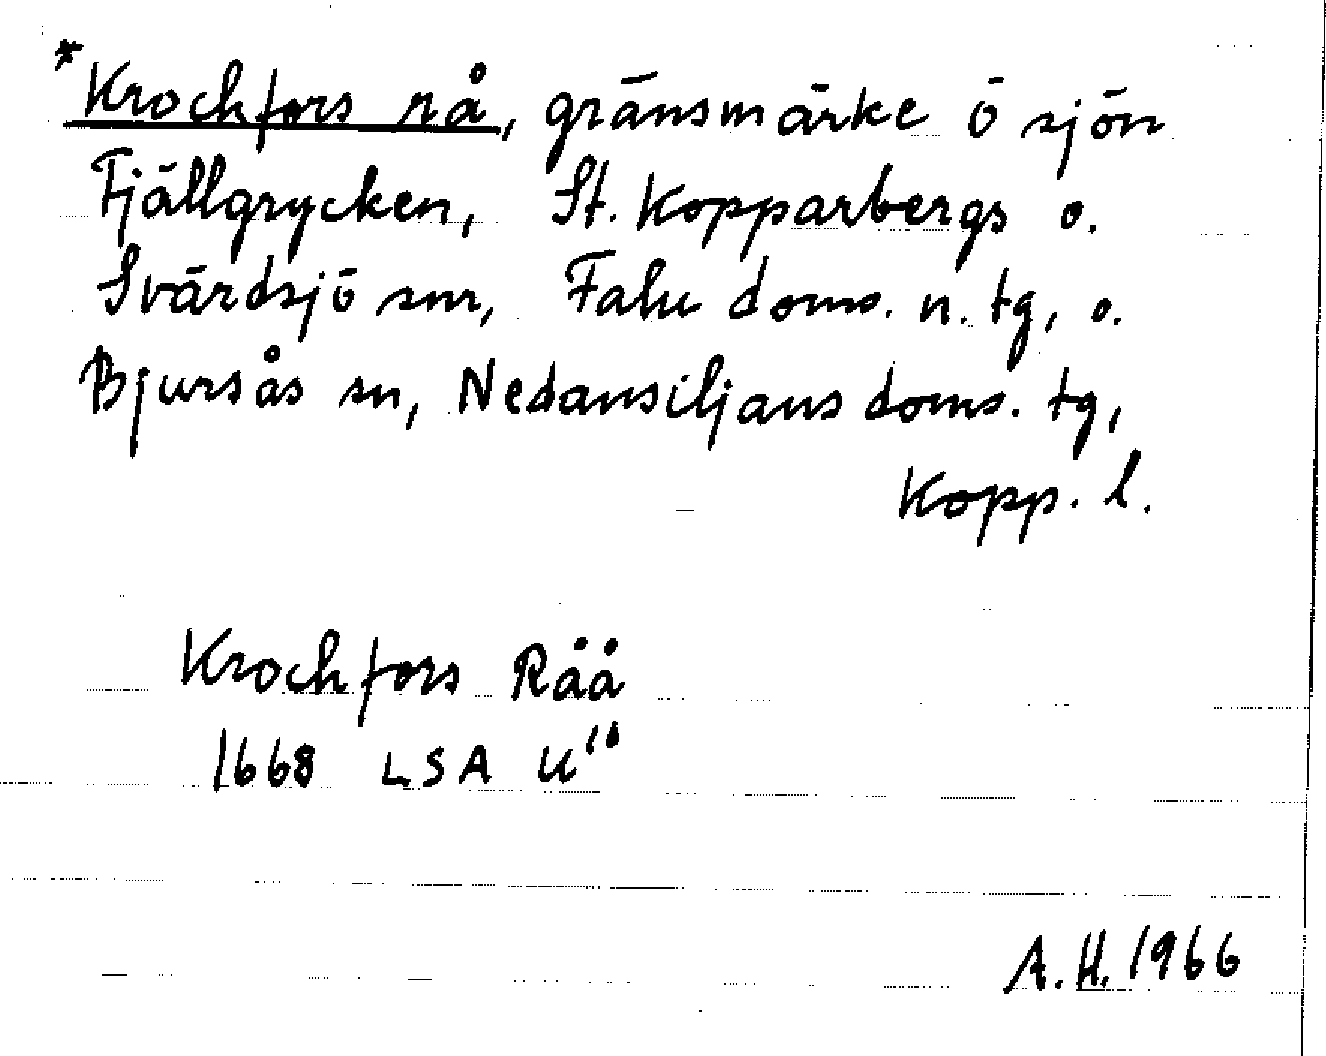 *Krochfors rå, gränsmärke ö sjön
Fjällgrycken, St. Kopparbergs o.
Svärdsjö snr, Falu doms. n. tg, o.
Bjursås sn, Nedansiljans doms. tg,
Kopp. l.
Krochfors Råå
1668 LSA
A.H. 1966